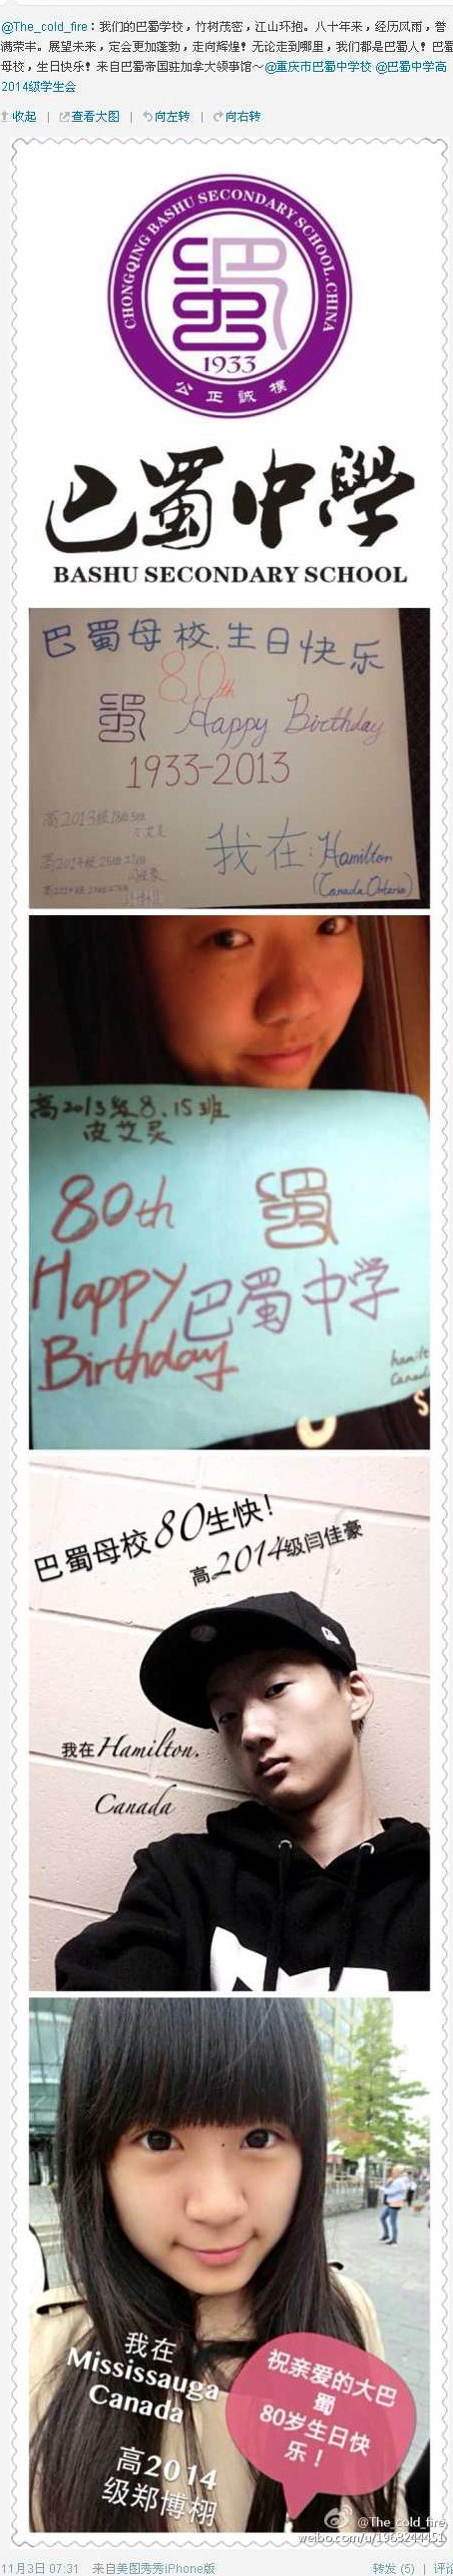 @The_cold_fire：我们的巴蜀学校，竹树茂密，江山环抱。八十年来，经历风雨，誉
满荣丰。展望未来，定会更加蓬勃，走向辉煌！无论走到哪里，我们都是巴蜀人！巴蜀
母校，生日快乐！来自巴蜀帝国驻加拿大领事馆～@重庆市巴蜀中学校 @巴蜀中学高
2014级学生会
收起 | 查看大图 | 向左转 | 向右转
CHONGQING BASHU SECONDARY SCHOOL.CHINA
巴蜀
1933
公正誠樸
巴蜀中學
BASHU SECONDARY SCHOOL
巴蜀母校,生日快乐
80th
蜀
Happy Birthday
1933-2013
我在:Hamilton
(Canada Ontario)
高2013级8、15班
皮艾灵
80th
蜀
Happy
巴蜀中学
Birthday
巴蜀母校80生快!
高2014级闫佳豪
我在Hamilton,
Canada
我在
Mississauga
Canada
祝亲爱的大巴
蜀
80岁生日快
乐！
高2014
级郑博栩
@The_cold_fire
weibo.com/u/1963244451
11月3日 07:31 来自美图秀秀iPhone版
转发 (5) | 评论